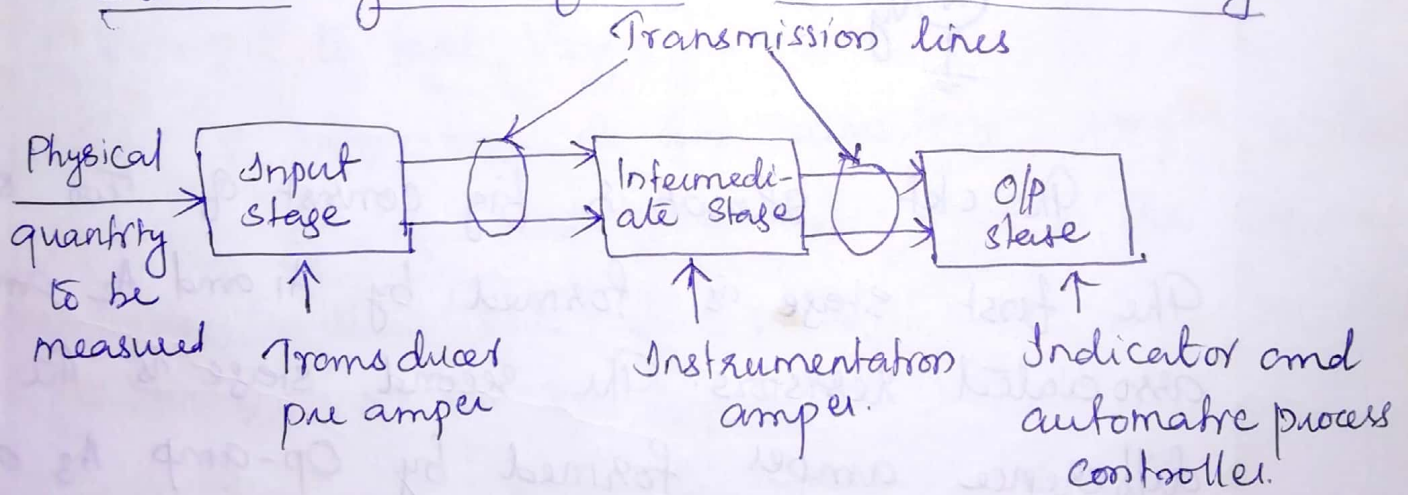 Transmission lines
Physical
quantity
to be
measured
Input
stage
Intermedi-
ate stage
O/P
stage
Transducer
pre amper
Instrumentation
amper.
Indicator and
automatic process
controller.